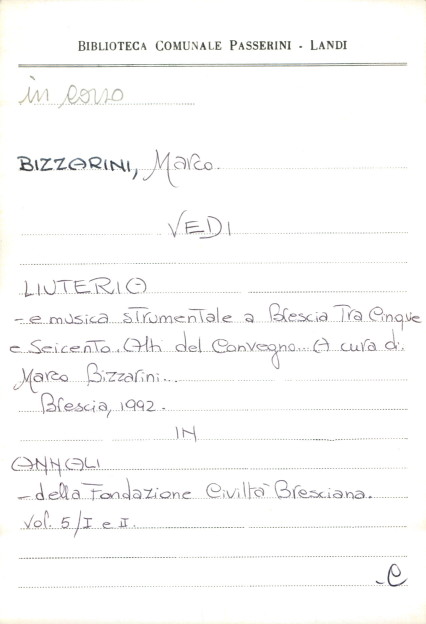 BIBLIOTECA COMUNALE PASSERINI - LANDI
in corso
BIZZARINI, Marco.
VEDI
LIUTERIA
- e musica strumentale a Brescia Tra Cinque
e Seicento. Atti del Convegno... A cura di
Marco Bizzarini...
Brescia, 1992.
IN
ANNALI
- della Fondazione Civiltà Bresciana.
Vol. 5/I e II.
-C